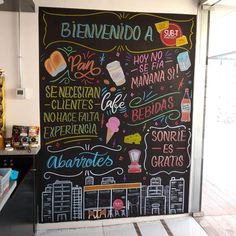 BIENVENIDO A
SUB-T
Pan
HOY NO
SE FIA
MAÑANA SI!
SE NECESITAN
-CLIENTES-
NO HACE FALTA
EXPERIENCIA
Café
BEBIDAS
SONRIE
ES
GRATIS
Abarrotes